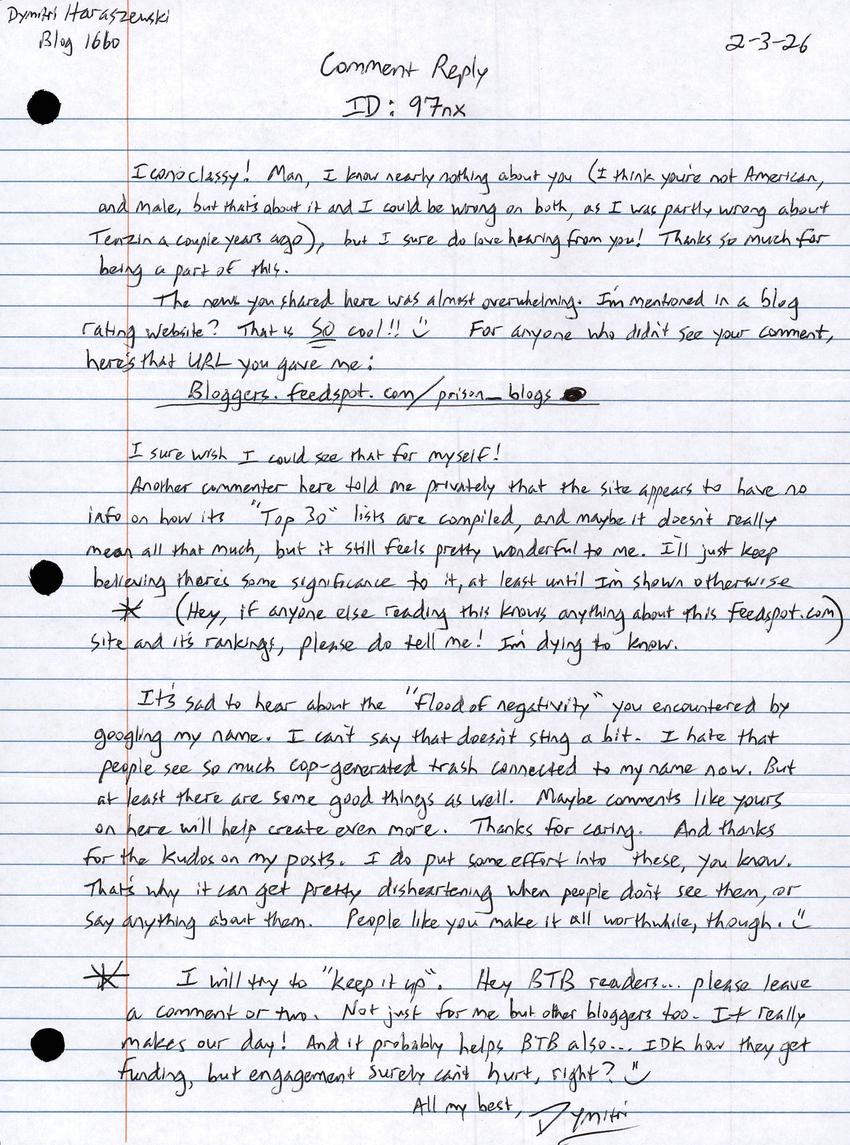 Dymitri Haraszewski
Blog 1660
2-3-26
Comment Reply
ID: 97nx
Iconoclassy! Man, I know nearly nothing about you (I think you're not American,
and male, but that's about it and I could be wrong on both, as I was partly wrong about
Tenzin a couple years ago), but I sure do love hearing from you! Thanks so much for
being a part of this.
The news you shared here was almost overwhelming. I'm mentioned in a blog
rating website? That is SO cool!! :)
For anyone who didn't see your comment,
here's that URL you gave me:
Bloggers.feedspot.com/prison_blogs
I sure wish I could see that for myself!
Another commenter here told me privately that the site appears to have no
info on how its "Top 30" lists are compiled, and maybe it doesn't really
mean all that much, but it still feels pretty wonderful to me. I'll just keep
believing there's some significance to it, at least until I'm shown otherwise
* (Hey, if anyone else reading this knows anything about this feedspot.com)
site and it's rankings, please do tell me! I'm dying to know.
It's sad to hear about the "flood of negativity" you encountered by
googling my name. I can't say that doesn't sting a bit. I hate that
people see so much cop-generated trash connected to my name now. But
at least there are some good things as well. Maybe comments like yours
on here will help create even more. Thanks for caring. And thanks
for the kudos on my posts. I do put some effort into these, you know.
That's why it can get pretty disheartening when people don't see them, or
say anything about them. People like you make it all worthwhile, though. :)
* I will try to "keep it up". Hey BTB readers... please leave
a comment or two. Not just for me but other bloggers too. It really
makes our day! And it probably helps BTB also... IDK how they get
funding, but engagement surely can't hurt, right? :)
All my best, Dymitri